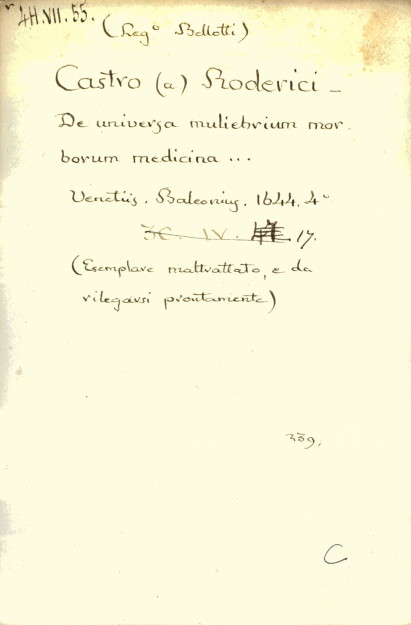 4H.VII.55.
(Legº Bellotti)
Castro (a) Roderici -
De universa muliebrium mor-
borum medicina ...
Venetiis. Baleonius. 1644. 4º
IV. 17.
(Esemplare maltrattato, e da
rilegarsi prontamente)
239.
C